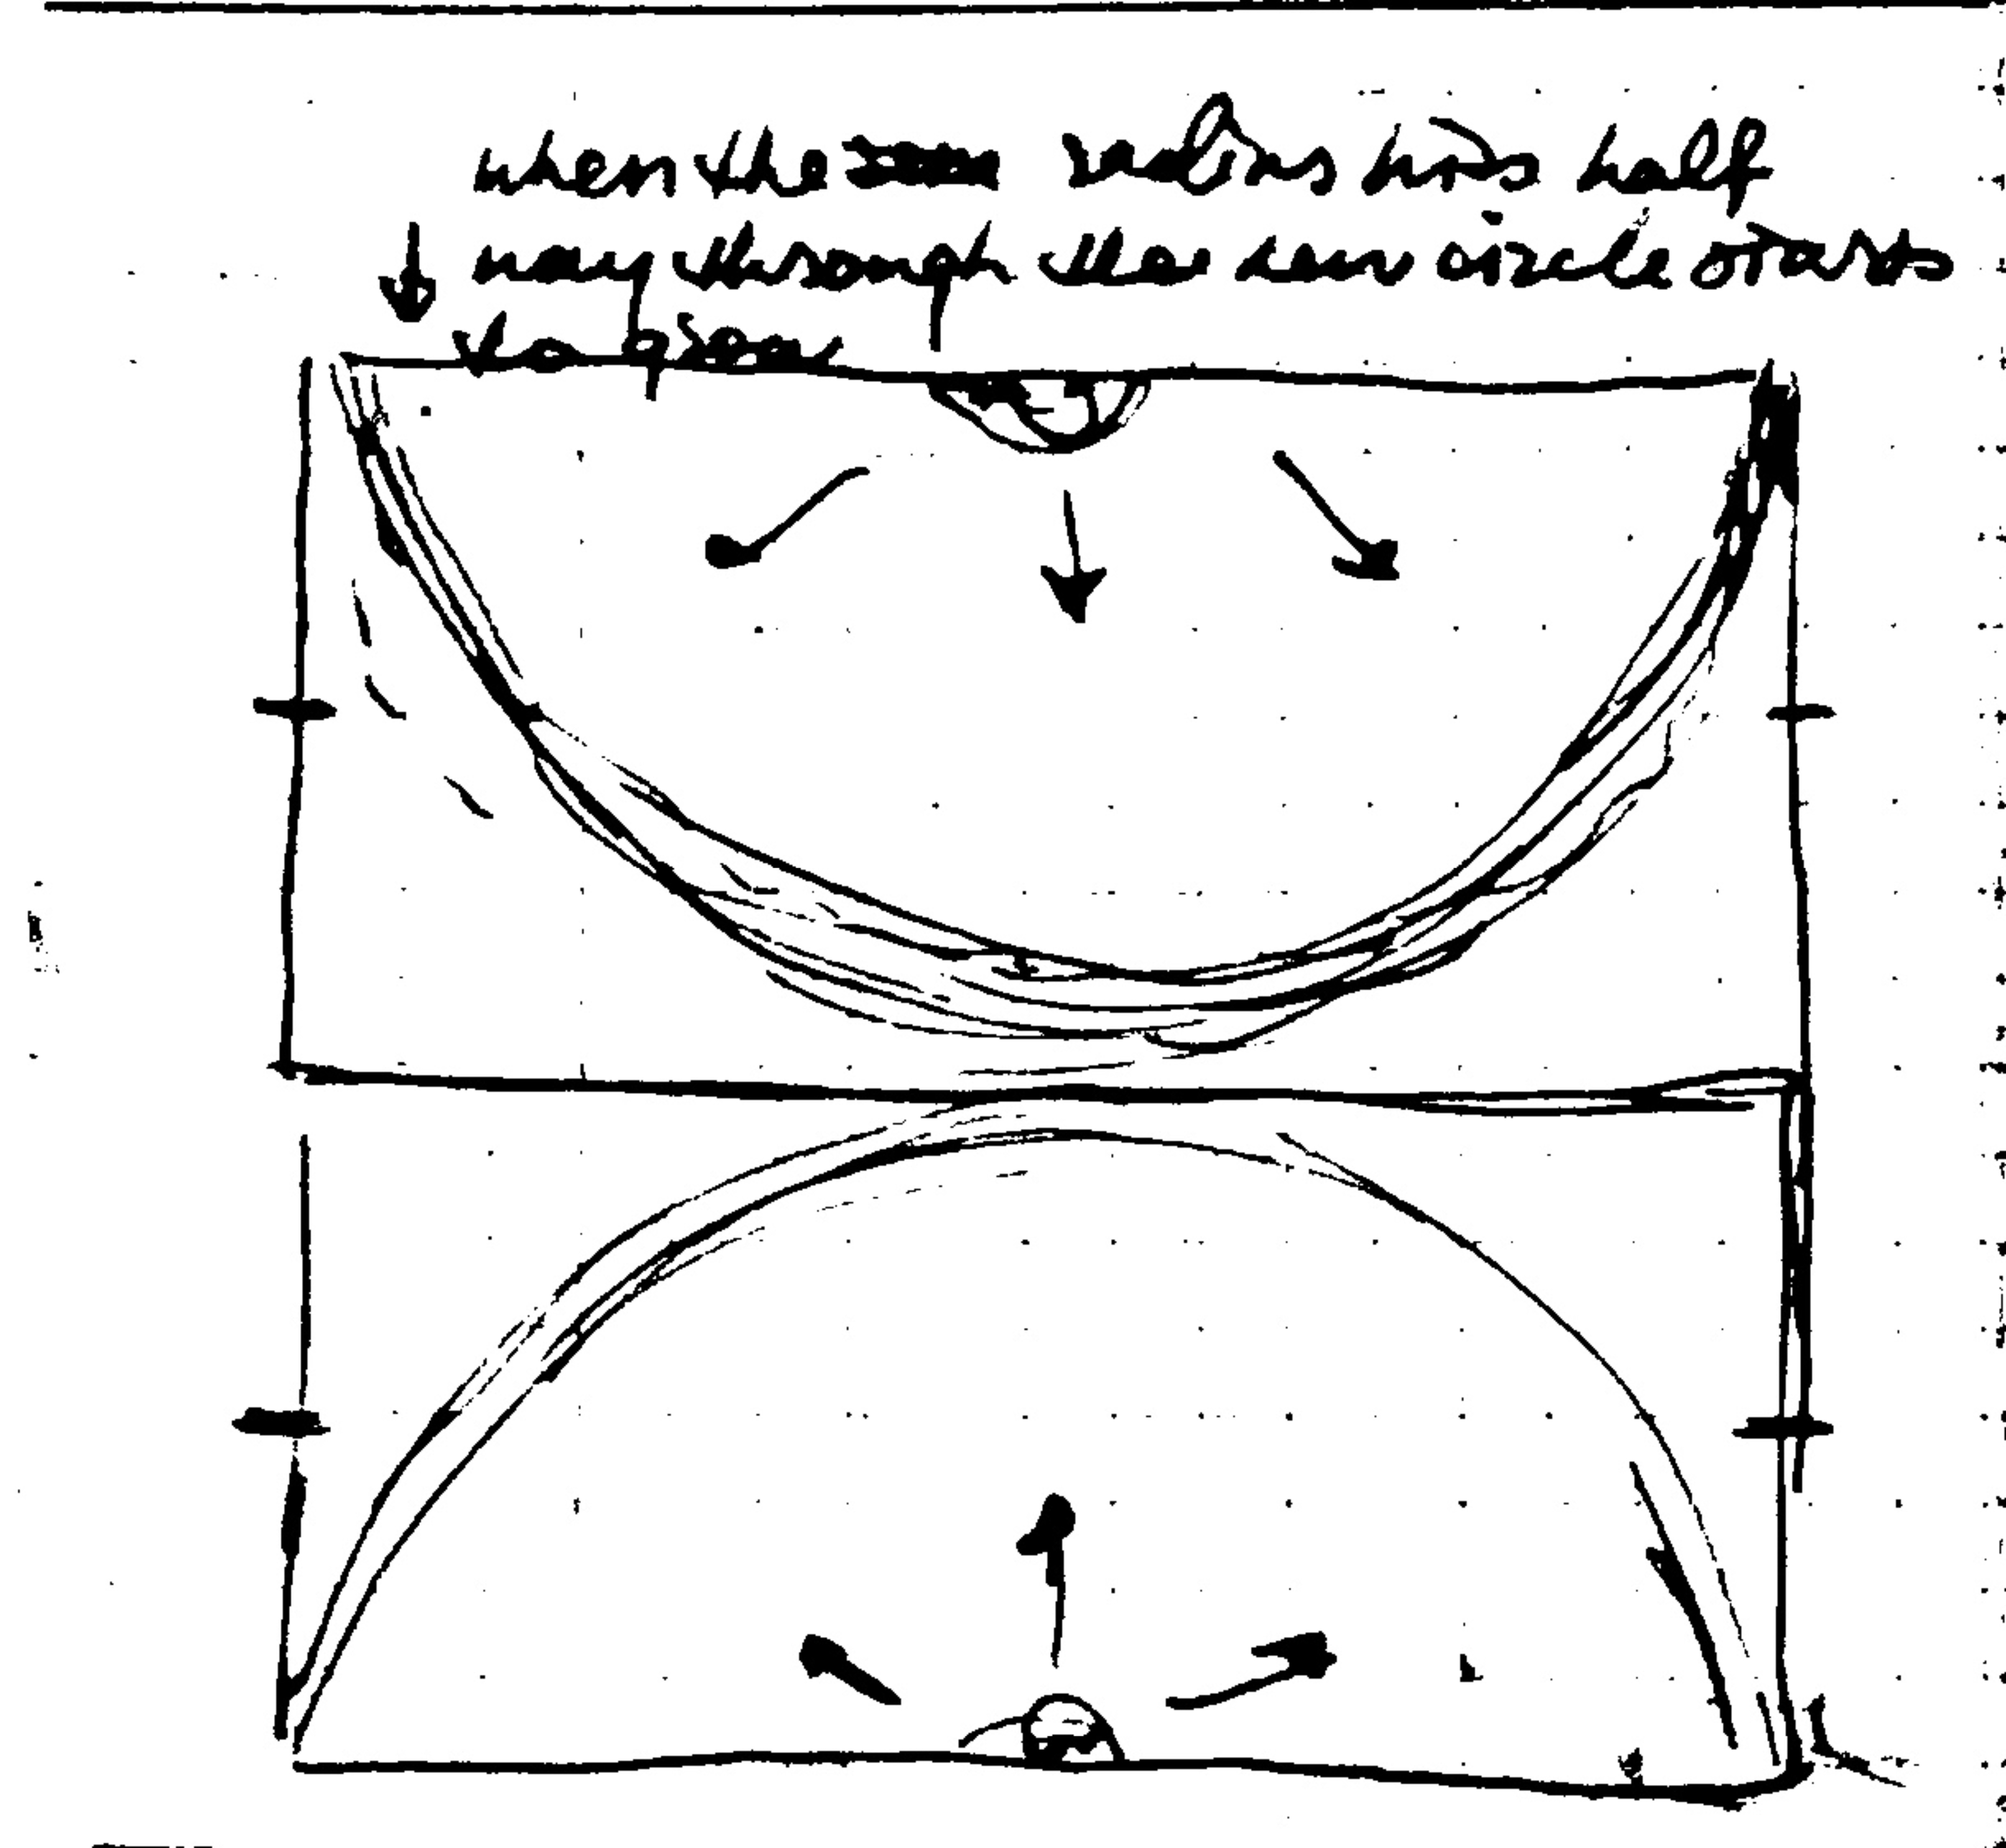 when the radius hits half
way through the new circle starts
to grow